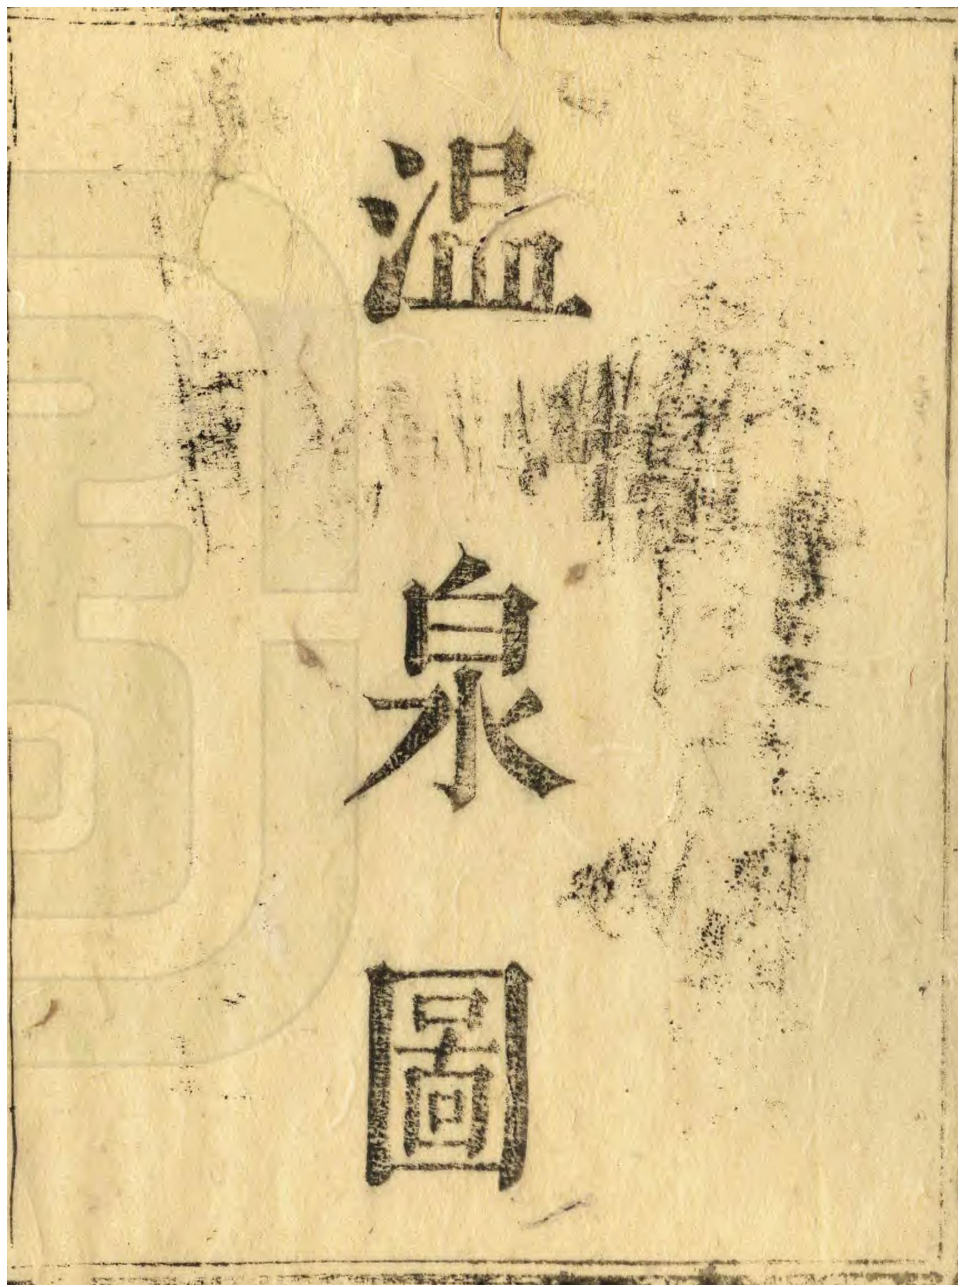 温泉圖